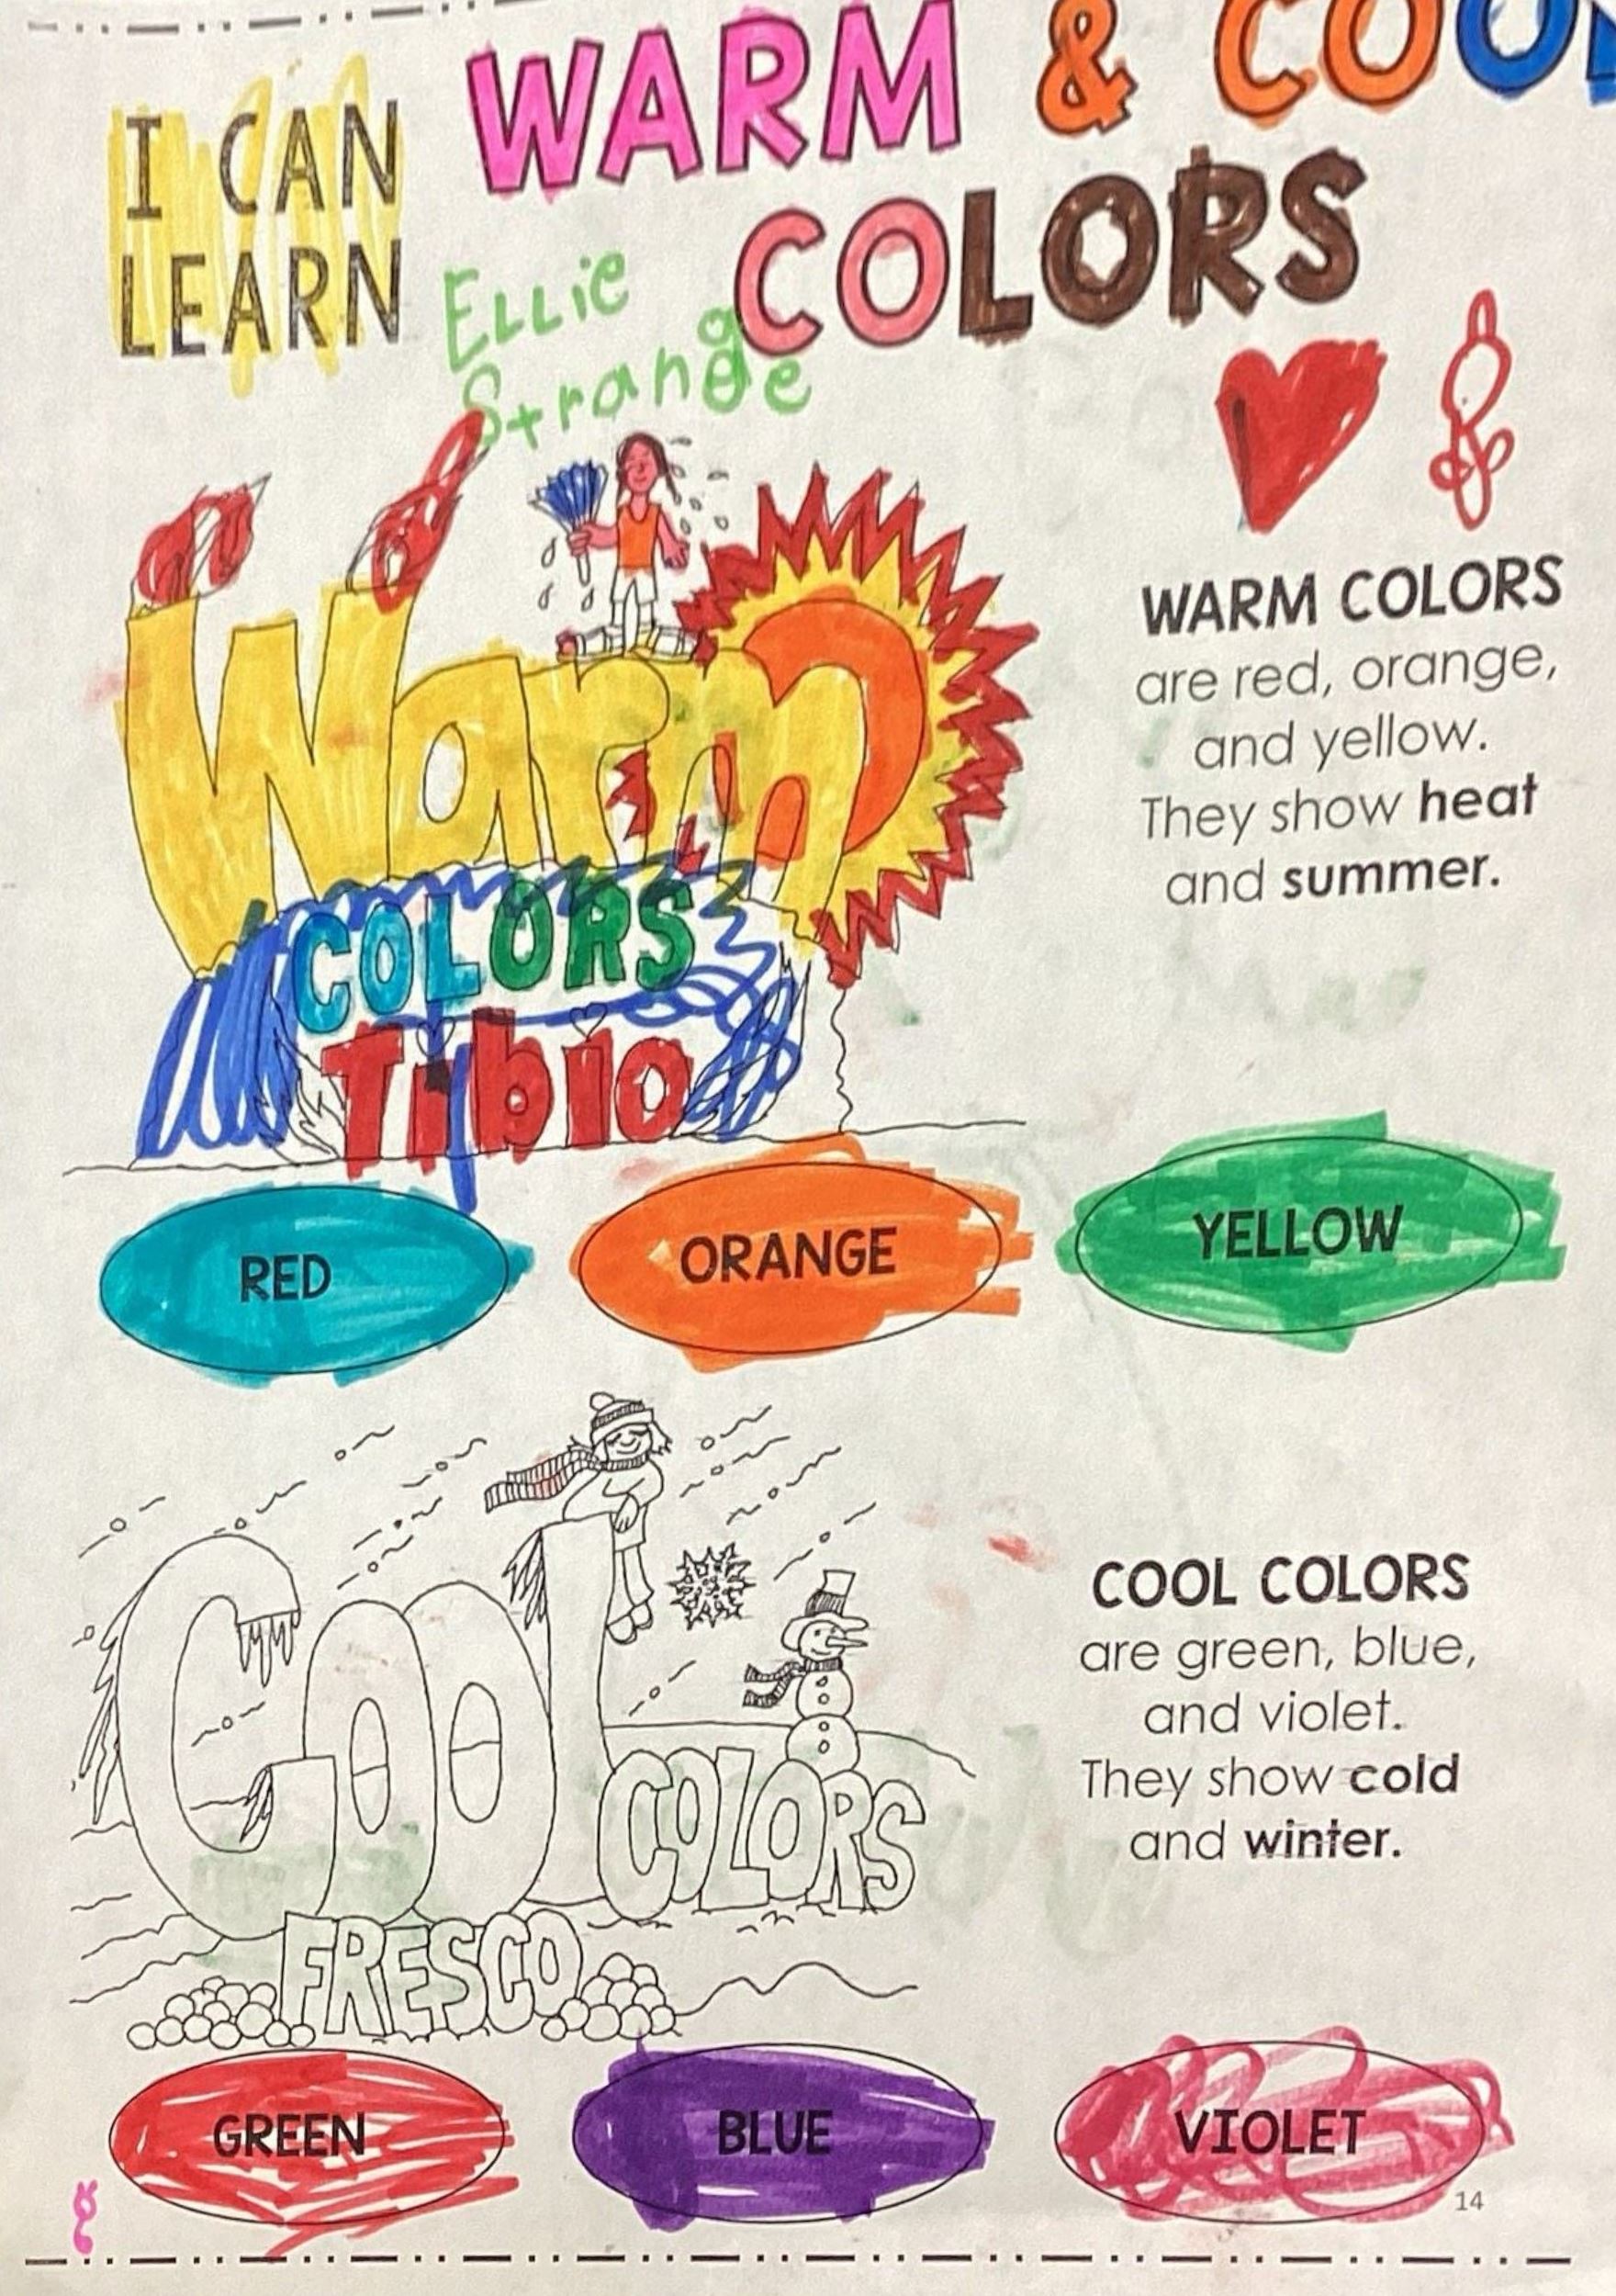 I CAN
LEARN
WARM & COO
COLORS
Ellie
Strange
WARM COLORS
are red, orange,
and yellow.
They show heat
and summer.
Warm
COLORS
Tibio
RED
ORANGE
YELLOW
COOL
COLORS
FRESCO
COOL COLORS
are green, blue,
and violet.
They show cold
and winter.
GREEN
BLUE
VIOLET
14